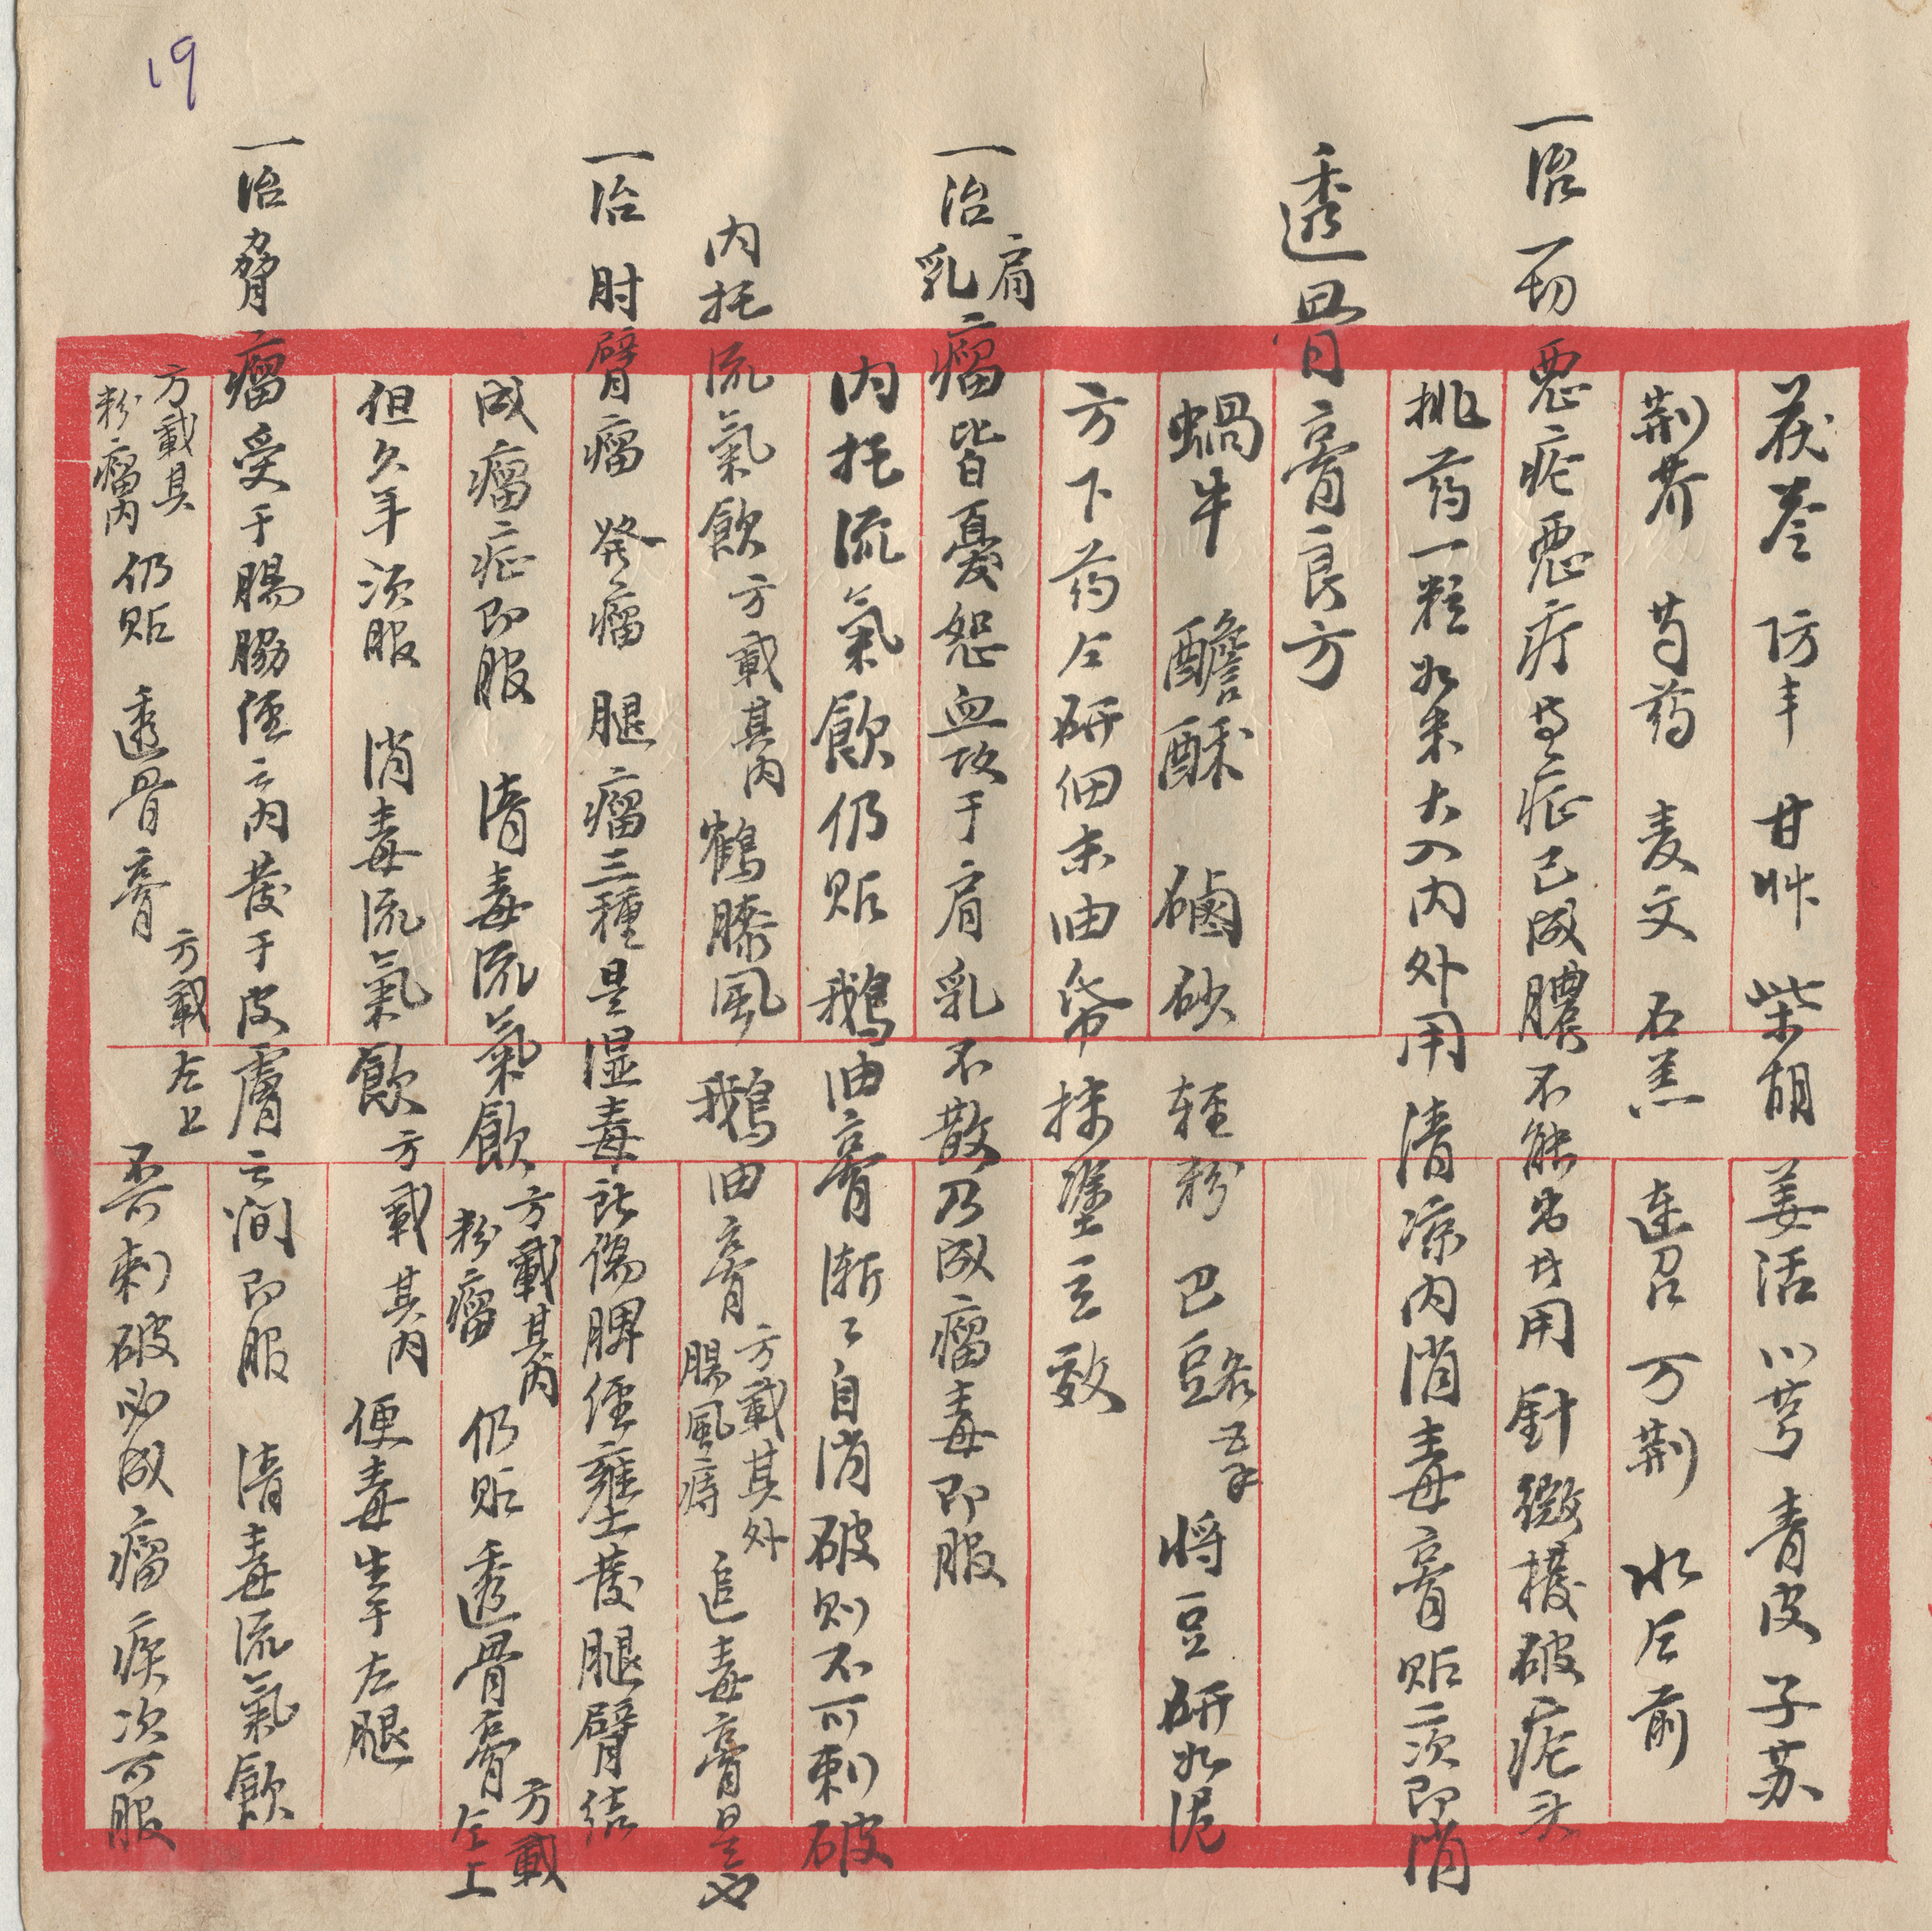 19
茯苓 防丰 甘艸 柴胡 姜活 川芎 青皮 子苏
荆芥 芍药 麦文 石羔 連召 万荆 水仝前
一治一切惡疕惡疔𠀋症已成膿不能出用針微撥破疕头
挑药一粒如米大入内外用清凉内消毒膏贴二次即消
透骨膏良方
蝸牛 蟾酥 硇砂 轻粉 巴豆各五分 将豆研如泥
方下药仝研細末油帋抹塗立效
一治肩乳瘤皆憂怒血攻于肩乳不散乃成瘤毒即服
内托流氣飲仍贴鵝油膏渐々自消破则不可刺破
内托流氣飲方載其内鶴膝風 鵝油膏方載其外腸風痔追毒膏是也
一治肘臂瘤 発瘤 腿瘤三種是湿毒所傷脾経壅发腿臂结
成瘤症即服 清毒流氣飲方載其内粉瘤 仍贴透骨膏方載仝上
但久年须服 消毒流氣飲方載其内 便毒生于左腿
一治脅瘤受于腸脇経之内发于皮膚之间即服 清毒流氣飲
方載具粉瘤内仍贴 透骨膏方載左上 不刺破必成瘤疾次可服